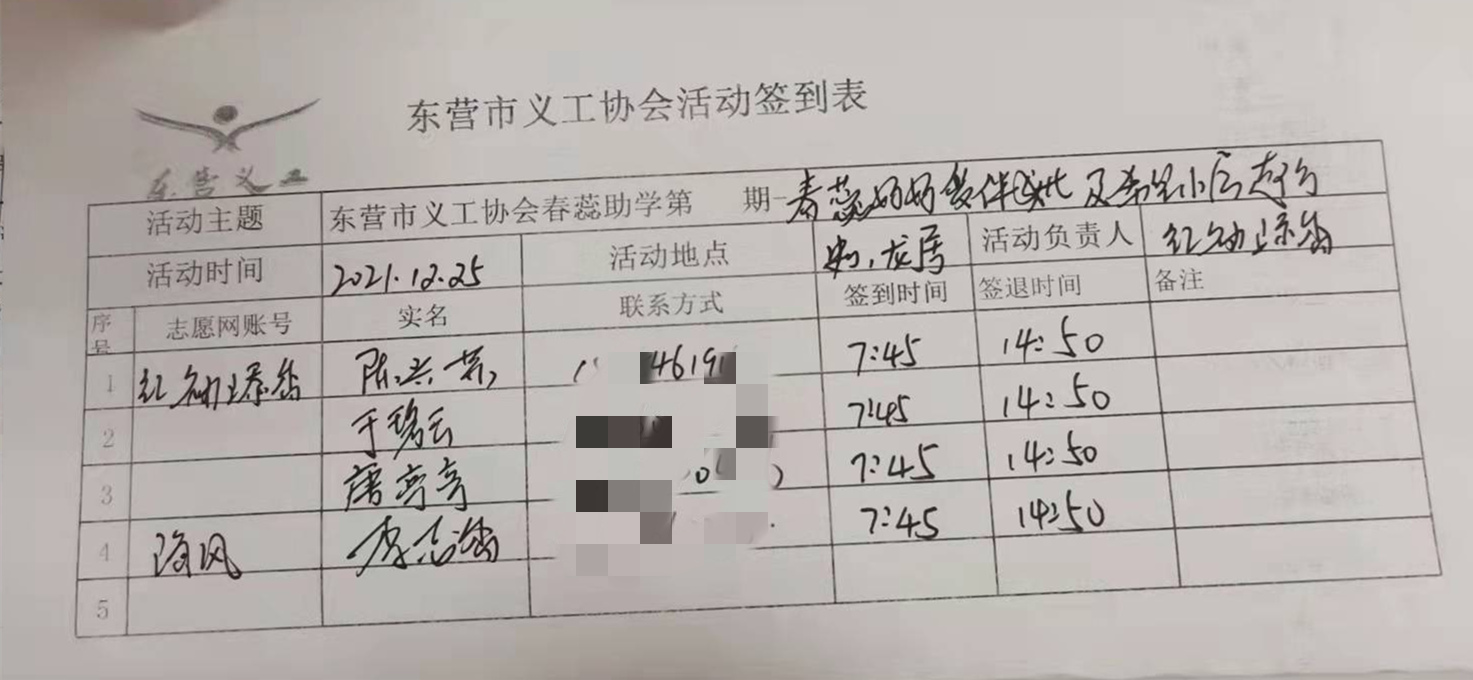 东营市义工协会活动签到表
东营义工
活动主题 东营市义工协会春蕊助学第 期-春蕊妈妈 及 小 
活动时间 2021.12.25 活动地点 龙居 活动负责人 红
序号 志愿网账号 实名 联系方式 签到时间 签退时间 备注
1 红 陈兴 4619 7:45 14:50
2 于 云 7:45 14:50
3 唐 7:45 14:50
4 海风 李志 7:45 14:50
5